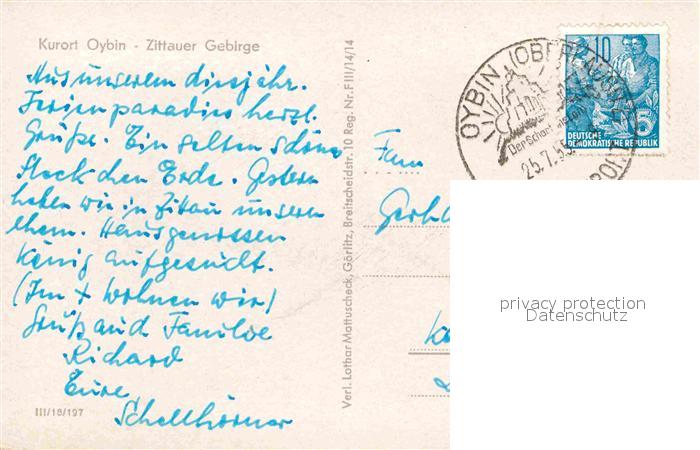 Kurort Oybin - Zittauer Gebirge
Aus unserem diesjähr.
Ferienparadies herzl.
Grüße. Ein selten schönes
Fleckchen Erde. Gestern
haben wir in Zittau unseren
ehem. Hausgenossen
König aufgesucht.
(Im + wohnen wir)
Gruß auch Familie
Richard
Eure
Schellhörner
III/18/197
Verl. Lothar Mattuscheck, Görlitz, Breitscheidstr. 10 Reg. Nr. F III/14/14
OYBIN (OBERLAUSITZ)
Der Scharfenstein
25.7.55
10
5
DEUTSCHE
DEMOKRATISCHE REPUBLIK
Fam
Gerh
privacy protection
Datenschutz